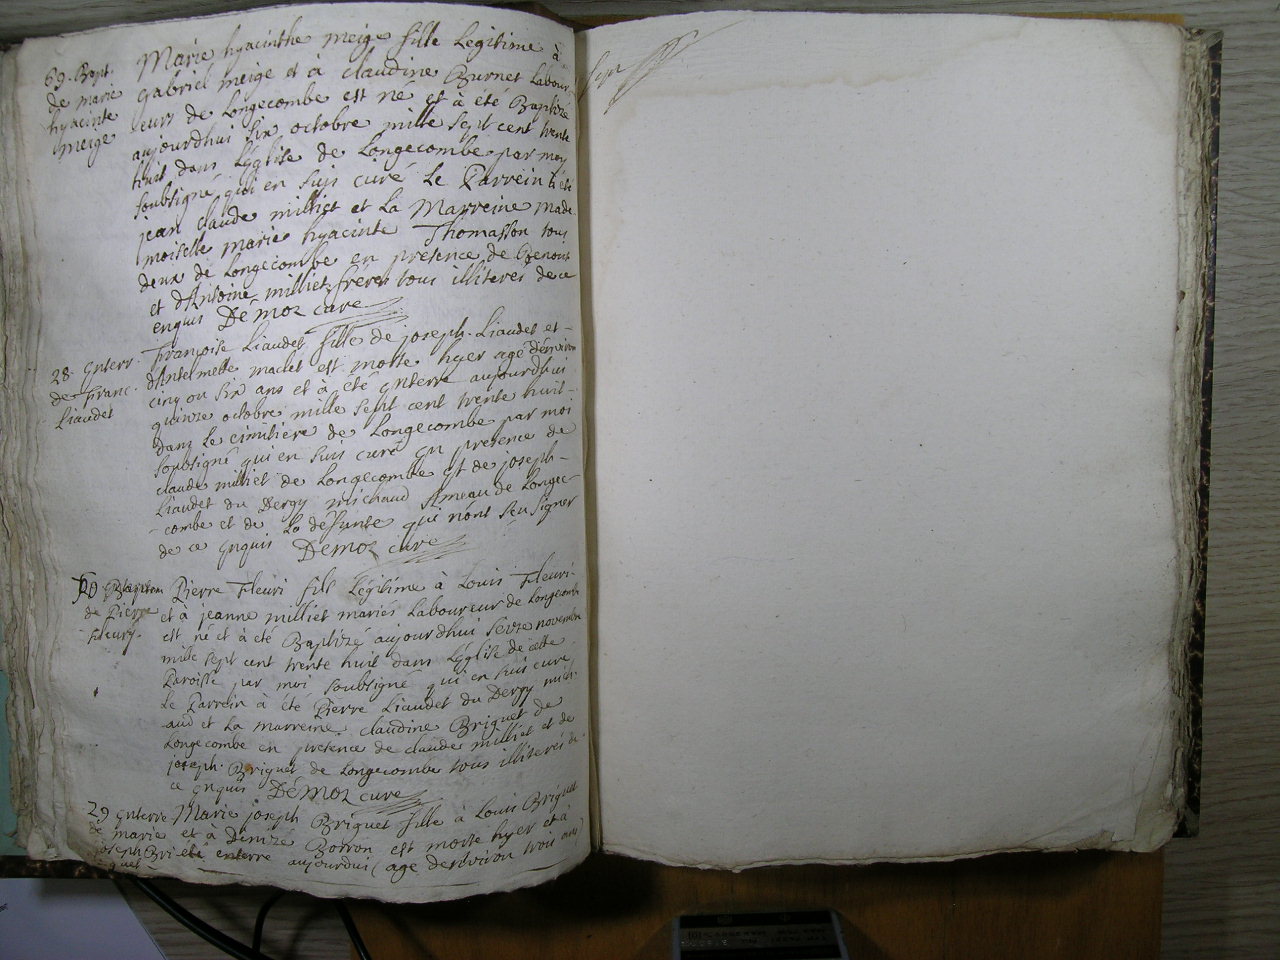 69. Bapt.
de marie
hyacinte
meige
Marie hyacinthe meige fille Legitime à
gabriel meige et à claudine Burnet Labour
eurs de Longecombe est né et à été Baptizé
aujourdhui six octobre mille sept cent trente
huit dans L'église de Longecombe par moy
soubsigné qui en suis curé Le Parrein à été
jean claude milliet et La Marreine made
moiselle marie hyacinte Thomasson tous
deux de Longecombe en presence de Benoit
et d'Antoine milliet freres tous illiteres de ce
enquis Démoz curé
28 Enterr
de Franc
Liaudet
Françoise Liaudet fille de joseph Liaudet et
d'Antelmette maclet est morte hyer agé d'environ
cinq ou six ans et à été enterré aujourdhui
quinze octobre mille sept cent trente huit
dans Le cimitiere de Longecombe par moi
soubsigné qui en suis curé en presence de
claude milliet de Longecombe et de joseph
Liaudet du Dergy michaud Ameau de Longe
combe et de La defunte qui n'ont seu signer
de ce enquis Démoz curé
70 Baptem
de Pierre
fleury
Pierre Fleuri fils Légitime à Louis Fleuri
et à jeanne milliet mariés Laboureur de Longecombe
est né et à été Baptizé aujourdhui seize novembre
mille sept cent trente huit dans L'église de cette
Paroisse par moi soubsigné qui en suis curé
Le Parrein à été Pierre Liaudet du Dergy mich
aud et La marreine claudine Briquet de
Longecombe en presence de claude milliet et de
joseph Briquet de Longecombe tous illiteres de
ce enquis Démoz curé
29 enterre
de marie
joseph Bri
quet
Marie joseph Briquet fille à Louis Briquet
et à Denize Borron est morte hyer et à
été enterré aujourdui age denviron trois ans